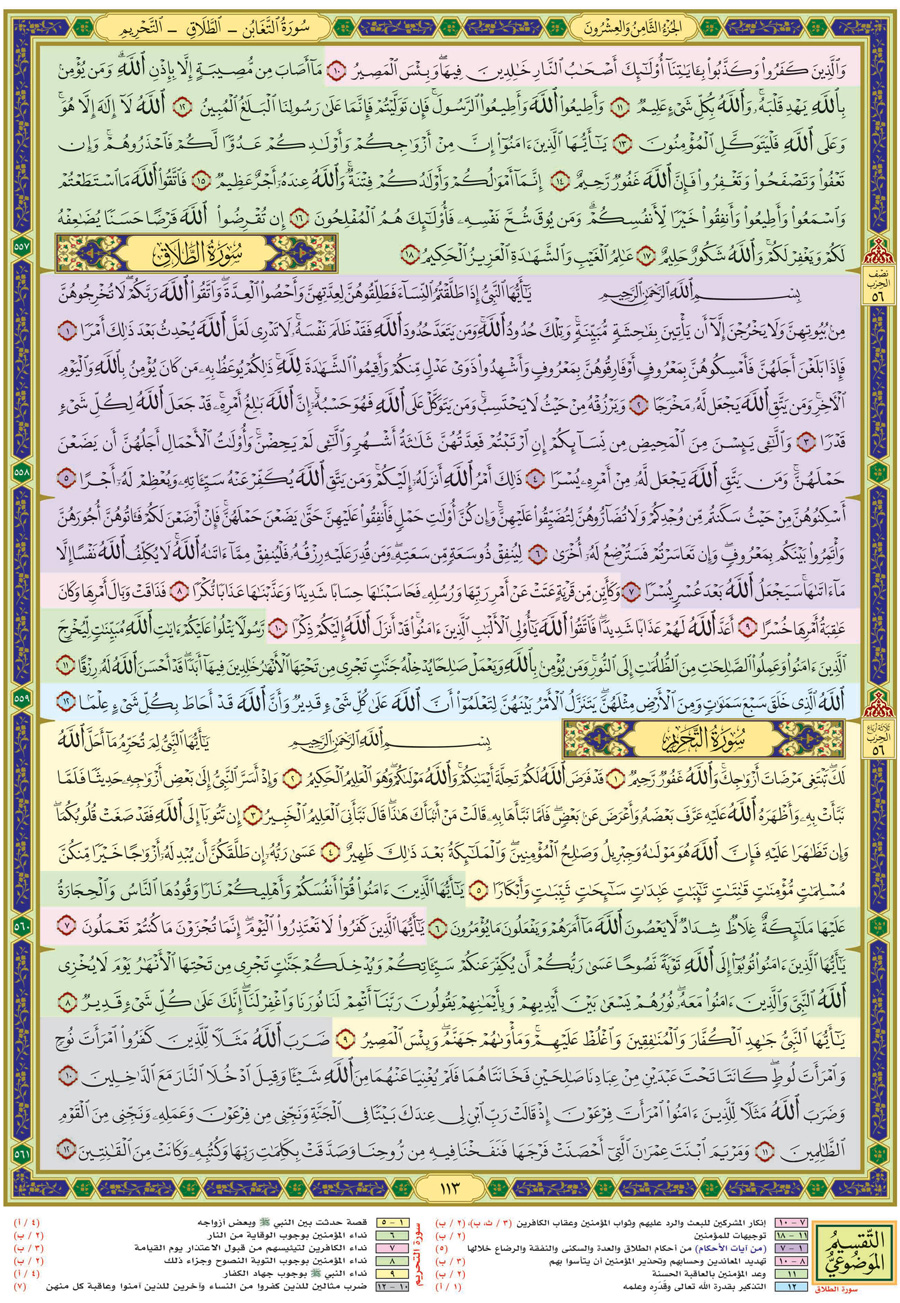 الجُزْءُ الثَّامِنُ وَالعِشْرُونَ
سُورَةُ التَّغَابُنِ - الطَّلَاقِ - التَّحْرِيمِ
وَٱلَّذِينَ كَفَرُوا۟ وَكَذَّبُوا۟ بِـَٔايَٰتِنَآ أُو۟لَٰٓئِكَ أَصْحَٰبُ ٱلنَّارِ خَٰلِدِينَ فِيهَا ۖ وَبِئْسَ ٱلْمَصِيرُ ١٠ مَآ أَصَابَ مِن مُّصِيبَةٍ إِلَّا بِإِذْنِ ٱللَّهِ ۗ وَمَن يُؤْمِنۢ
بِٱللَّهِ يَهْدِ قَلْبَهُۥ ۚ وَٱللَّهُ بِكُلِّ شَىْءٍ عَلِيمٌ ١١ وَأَطِيعُوا۟ ٱللَّهَ وَأَطِيعُوا۟ ٱلرَّسُولَ ۚ فَإِن تَوَلَّيْتُمْ فَإِنَّمَا عَلَىٰ رَسُولِنَا ٱلْبَلَٰغُ ٱلْمُبِينُ ١٢ ٱللَّهُ لَآ إِلَٰهَ إِلَّا هُوَ ۚ
وَعَلَى ٱللَّهِ فَلْيَتَوَكَّلِ ٱلْمُؤْمِنُونَ ١٣ يَٰٓأَيُّهَا ٱلَّذِينَ ءَامَنُوٓا۟ إِنَّ مِنْ أَزْوَٰجِكُمْ وَأَوْلَٰدِكُمْ عَدُوًّا لَّكُمْ فَٱحْذَرُوهُمْ ۚ وَإِن
تَعْفُوا۟ وَتَصْفَحُوا۟ وَتَغْفِرُوا۟ فَإِنَّ ٱللَّهَ غَفُورٌ رَّحِيمٌ ١٤ إِنَّمَآ أَمْوَٰلُكُمْ وَأَوْلَٰدُكُمْ فِتْنَةٌ ۚ وَٱللَّهُ عِندَهُۥٓ أَجْرٌ عَظِيمٌ ١٥ فَٱتَّقُوا۟ ٱللَّهَ مَا ٱسْتَطَعْتُمْ
وَٱسْمَعُوا۟ وَأَطِيعُوا۟ وَأَنفِقُوا۟ خَيْرًا لِّأَنفُسِكُمْ ۗ وَمَن يُوقَ شُحَّ نَفْسِهِۦ فَأُو۟لَٰٓئِكَ هُمُ ٱلْمُفْلِحُونَ ١٦ إِن تُقْرِضُوا۟ ٱللَّهَ قَرْضًا حَسَنًا يُضَٰعِفْهُ
لَكُمْ وَيَغْفِرْ لَكُمْ ۚ وَٱللَّهُ شَكُورٌ حَلِيمٌ ١٧ عَٰلِمُ ٱلْغَيْبِ وَٱلشَّهَٰدَةِ ٱلْعَزِيزُ ٱلْحَكِيمُ ١٨
سُورَةُ الطَّلَاقِ
بِسْمِ ٱللَّهِ ٱلرَّحْمَٰنِ ٱلرَّحِيمِ يَٰٓأَيُّهَا ٱلنَّبِىُّ إِذَا طَلَّقْتُمُ ٱلنِّسَآءَ فَطَلِّقُوهُنَّ لِعِدَّتِهِنَّ وَأَحْصُوا۟ ٱلْعِدَّةَ ۖ وَٱتَّقُوا۟ ٱللَّهَ رَبَّكُمْ ۖ لَا تُخْرِجُوهُنَّ
مِنۢ بُيُوتِهِنَّ وَلَا يَخْرُجْنَ إِلَّآ أَن يَأْتِينَ بِفَٰحِشَةٍ مُّبَيِّنَةٍ ۚ وَتِلْكَ حُدُودُ ٱللَّهِ ۚ وَمَن يَتَعَدَّ حُدُودَ ٱللَّهِ فَقَدْ ظَلَمَ نَفْسَهُۥ ۚ لَا تَدْرِى لَعَلَّ ٱللَّهَ يُحْدِثُ بَعْدَ ذَٰلِكَ أَمْرًا ١
فَإِذَا بَلَغْنَ أَجَلَهُنَّ فَأَمْسِكُوهُنَّ بِمَعْرُوفٍ أَوْ فَارِقُوهُنَّ بِمَعْرُوفٍ وَأَشْهِدُوا۟ ذَوَىْ عَدْلٍ مِّنكُمْ وَأَقِيمُوا۟ ٱلشَّهَٰدَةَ لِلَّهِ ۚ ذَٰلِكُمْ يُوعَظُ بِهِۦ مَن كَانَ يُؤْمِنُ بِٱللَّهِ وَٱلْيَوْمِ
ٱلْءَاخِرِ ۚ وَمَن يَتَّقِ ٱللَّهَ يَجْعَل لَّهُۥ مَخْرَجًا ٢ وَيَرْزُقْهُ مِنْ حَيْثُ لَا يَحْتَسِبُ ۚ وَمَن يَتَوَكَّلْ عَلَى ٱللَّهِ فَهُوَ حَسْبُهُۥٓ ۚ إِنَّ ٱللَّهَ بَٰلِغُ أَمْرِهِۦ ۚ قَدْ جَعَلَ ٱللَّهُ لِكُلِّ شَىْءٍ
قَدْرًا ٣ وَٱلَّٰٓـِٔى يَئِسْنَ مِنَ ٱلْمَحِيضِ مِن نِّسَآئِكُمْ إِنِ ٱرْتَبْتُمْ فَعِدَّتُهُنَّ ثَلَٰثَةُ أَشْهُرٍ وَٱلَّٰٓـِٔى لَمْ يَحِضْنَ ۚ وَأُو۟لَٰتُ ٱلْأَحْمَالِ أَجَلُهُنَّ أَن يَضَعْنَ
حَمْلَهُنَّ ۚ وَمَن يَتَّقِ ٱللَّهَ يَجْعَل لَّهُۥ مِنْ أَمْرِهِۦ يُسْرًا ٤ ذَٰلِكَ أَمْرُ ٱللَّهِ أَنزَلَهُۥٓ إِلَيْكُمْ ۚ وَمَن يَتَّقِ ٱللَّهَ يُكَفِّرْ عَنْهُ سَيِّـَٔاتِهِۦ وَيُعْظِمْ لَهُۥٓ أَجْرًا ٥
أَسْكِنُوهُنَّ مِنْ حَيْثُ سَكَنتُم مِّن وُجْدِكُمْ وَلَا تُضَآرُّوهُنَّ لِتُضَيِّقُوا۟ عَلَيْهِنَّ ۚ وَإِن كُنَّ أُو۟لَٰتِ حَمْلٍ فَأَنفِقُوا۟ عَلَيْهِنَّ حَتَّىٰ يَضَعْنَ حَمْلَهُنَّ ۚ فَإِنْ أَرْضَعْنَ لَكُمْ فَـَٔاتُوهُنَّ أُجُورَهُنَّ
وَأْتَمِرُوا۟ بَيْنَكُم بِمَعْرُوفٍ ۖ وَإِن تَعَاسَرْتُمْ فَسَتُرْضِعُ لَهُۥٓ أُخْرَىٰ ٦ لِيُنفِقْ ذُو سَعَةٍ مِّن سَعَتِهِۦ ۖ وَمَن قُدِرَ عَلَيْهِ رِزْقُهُۥ فَلْيُنفِقْ مِمَّآ ءَاتَىٰهُ ٱللَّهُ ۚ لَا يُكَلِّفُ ٱللَّهُ نَفْسًا إِلَّا
مَآ ءَاتَىٰهَا ۚ سَيَجْعَلُ ٱللَّهُ بَعْدَ عُسْرٍ يُسْرًا ٧ وَكَأَيِّن مِّن قَرْيَةٍ عَتَتْ عَنْ أَمْرِ رَبِّهَا وَرُسُلِهِۦ فَحَاسَبْنَٰهَا حِسَابًا شَدِيدًا وَعَذَّبْنَٰهَا عَذَابًا نُّكْرًا ٨ فَذَاقَتْ وَبَالَ أَمْرِهَا وَكَانَ
عَٰقِبَةُ أَمْرِهَا خُسْرًا ٩ أَعَدَّ ٱللَّهُ لَهُمْ عَذَابًا شَدِيدًا ۖ فَٱتَّقُوا۟ ٱللَّهَ يَٰٓأُو۟لِى ٱلْأَلْبَٰبِ ٱلَّذِينَ ءَامَنُوا۟ ۚ قَدْ أَنزَلَ ٱللَّهُ إِلَيْكُمْ ذِكْرًا ١٠ رَّسُولًا يَتْلُوا۟ عَلَيْكُمْ ءَايَٰتِ ٱللَّهِ مُبَيِّنَٰتٍ لِّيُخْرِجَ
ٱلَّذِينَ ءَامَنُوا۟ وَعَمِلُوا۟ ٱلصَّٰلِحَٰتِ مِنَ ٱلظُّلُمَٰتِ إِلَى ٱلنُّورِ ۚ وَمَن يُؤْمِنۢ بِٱللَّهِ وَيَعْمَلْ صَٰلِحًا يُدْخِلْهُ جَنَّٰتٍ تَجْرِى مِن تَحْتِهَا ٱلْأَنْهَٰرُ خَٰلِدِينَ فِيهَآ أَبَدًا ۖ قَدْ أَحْسَنَ ٱللَّهُ لَهُۥ رِزْقًا ١١
ٱللَّهُ ٱلَّذِى خَلَقَ سَبْعَ سَمَٰوَٰتٍ وَمِنَ ٱلْأَرْضِ مِثْلَهُنَّ يَتَنَزَّلُ ٱلْأَمْرُ بَيْنَهُنَّ لِتَعْلَمُوٓا۟ أَنَّ ٱللَّهَ عَلَىٰ كُلِّ شَىْءٍ قَدِيرٌ وَأَنَّ ٱللَّهَ قَدْ أَحَاطَ بِكُلِّ شَىْءٍ عِلْمًۢا ١٢
سُورَةُ التَّحْرِيمِ
بِسْمِ ٱللَّهِ ٱلرَّحْمَٰنِ ٱلرَّحِيمِ يَٰٓأَيُّهَا ٱلنَّبِىُّ لِمَ تُحَرِّمُ مَآ أَحَلَّ ٱللَّهُ
لَكَ ۖ تَبْتَغِى مَرْضَاتَ أَزْوَٰجِكَ ۚ وَٱللَّهُ غَفُورٌ رَّحِيمٌ ١ قَدْ فَرَضَ ٱللَّهُ لَكُمْ تَحِلَّةَ أَيْمَٰنِكُمْ ۚ وَٱللَّهُ مَوْلَىٰكُمْ ۖ وَهُوَ ٱلْعَلِيمُ ٱلْحَكِيمُ ٢ وَإِذْ أَسَرَّ ٱلنَّبِىُّ إِلَىٰ بَعْضِ أَزْوَٰجِهِۦ حَدِيثًا فَلَمَّا
نَبَّأَتْ بِهِۦ وَأَظْهَرَهُ ٱللَّهُ عَلَيْهِ عَرَّفَ بَعْضَهُۥ وَأَعْرَضَ عَنۢ بَعْضٍ ۖ فَلَمَّا نَبَّأَهَا بِهِۦ قَالَتْ مَنْ أَنۢبَأَكَ هَٰذَا ۖ قَالَ نَبَّأَنِىَ ٱلْعَلِيمُ ٱلْخَبِيرُ ٣ إِن تَتُوبَآ إِلَى ٱللَّهِ فَقَدْ صَغَتْ قُلُوبُكُمَا ۖ
وَإِن تَظَٰهَرَا عَلَيْهِ فَإِنَّ ٱللَّهَ هُوَ مَوْلَىٰهُ وَجِبْرِيلُ وَصَٰلِحُ ٱلْمُؤْمِنِينَ ۖ وَٱلْمَلَٰٓئِكَةُ بَعْدَ ذَٰلِكَ ظَهِيرٌ ٤ عَسَىٰ رَبُّهُۥٓ إِن طَلَّقَكُنَّ أَن يُبْدِلَهُۥٓ أَزْوَٰجًا خَيْرًا مِّنكُنَّ
مُسْلِمَٰتٍ مُّؤْمِنَٰتٍ قَٰنِتَٰتٍ تَٰٓئِبَٰتٍ عَٰبِدَٰتٍ سَٰٓئِحَٰتٍ ثَيِّبَٰتٍ وَأَبْكَارًا ٥ يَٰٓأَيُّهَا ٱلَّذِينَ ءَامَنُوا۟ قُوٓا۟ أَنفُسَكُمْ وَأَهْلِيكُمْ نَارًا وَقُودُهَا ٱلنَّاسُ وَٱلْحِجَارَةُ
عَلَيْهَا مَلَٰٓئِكَةٌ غِلَاظٌ شِدَادٌ لَّا يَعْصُونَ ٱللَّهَ مَآ أَمَرَهُمْ وَيَفْعَلُونَ مَا يُؤْمَرُونَ ٦ يَٰٓأَيُّهَا ٱلَّذِينَ كَفَرُوا۟ لَا تَعْتَذِرُوا۟ ٱلْيَوْمَ ۖ إِنَّمَا تُجْزَوْنَ مَا كُنتُمْ تَعْمَلُونَ ٧
يَٰٓأَيُّهَا ٱلَّذِينَ ءَامَنُوا۟ تُوبُوٓا۟ إِلَى ٱللَّهِ تَوْبَةً نَّصُوحًا عَسَىٰ رَبُّكُمْ أَن يُكَفِّرَ عَنكُمْ سَيِّـَٔاتِكُمْ وَيُدْخِلَكُمْ جَنَّٰتٍ تَجْرِى مِن تَحْتِهَا ٱلْأَنْهَٰرُ يَوْمَ لَا يُخْزِى
ٱللَّهُ ٱلنَّبِىَّ وَٱلَّذِينَ ءَامَنُوا۟ مَعَهُۥ ۖ نُورُهُمْ يَسْعَىٰ بَيْنَ أَيْدِيهِمْ وَبِأَيْمَٰنِهِمْ يَقُولُونَ رَبَّنَآ أَتْمِمْ لَنَا نُورَنَا وَٱغْفِرْ لَنَآ ۖ إِنَّكَ عَلَىٰ كُلِّ شَىْءٍ قَدِيرٌ ٨
يَٰٓأَيُّهَا ٱلنَّبِىُّ جَٰهِدِ ٱلْكُفَّارَ وَٱلْمُنَٰفِقِينَ وَٱغْلُظْ عَلَيْهِمْ ۚ وَمَأْوَىٰهُمْ جَهَنَّمُ ۖ وَبِئْسَ ٱلْمَصِيرُ ٩ ضَرَبَ ٱللَّهُ مَثَلًا لِّلَّذِينَ كَفَرُوا۟ ٱمْرَأَتَ نُوحٍ
وَٱمْرَأَتَ لُوطٍ ۖ كَانَتَا تَحْتَ عَبْدَيْنِ مِنْ عِبَادِنَا صَٰلِحَيْنِ فَخَانَتَاهُمَا فَلَمْ يُغْنِيَا عَنْهُمَا مِنَ ٱللَّهِ شَيْـًٔا وَقِيلَ ٱدْخُلَا ٱلنَّارَ مَعَ ٱلدَّٰخِلِينَ ١٠
وَضَرَبَ ٱللَّهُ مَثَلًا لِّلَّذِينَ ءَامَنُوا۟ ٱمْرَأَتَ فِرْعَوْنَ إِذْ قَالَتْ رَبِّ ٱبْنِ لِى عِندَكَ بَيْتًا فِى ٱلْجَنَّةِ وَنَجِّنِى مِن فِرْعَوْنَ وَعَمَلِهِۦ وَنَجِّنِى مِنَ ٱلْقَوْمِ
ٱلظَّٰلِمِينَ ١١ وَمَرْيَمَ ٱبْنَتَ عِمْرَٰنَ ٱلَّتِىٓ أَحْصَنَتْ فَرْجَهَا فَنَفَخْنَا فِيهِ مِن رُّوحِنَا وَصَدَّقَتْ بِكَلِمَٰتِ رَبِّهَا وَكُتُبِهِۦ وَكَانَتْ مِنَ ٱلْقَٰنِتِينَ ١٢
نصف الحزب ٥٦
ثلاثة أرباع الحزب ٥٦
٥٥٧
٥٥٨
٥٥٩
٥٦٠
٥٦١
١١٣
التَّقْسِيمُ
المَوْضُوعِيُّ
سورة الطلاق
٧ - ١٠ إنكار المشركين للبعث والرد عليهم وثواب المؤمنين وعقاب الكافرين (٣ / ث، ب)، (٢ / ب)
١١ - ١٨ توجيهات للمؤمنين (٢ / ب)
١ - ٧ (من آيات الأحكام) من أحكام الطلاق والعدة والسكنى والنفقة والرضاع خلالها (٥)
٨ - ١٠ تهديد المعاندين وحسابهم وتحذير المؤمنين أن يتأسوا بهم (٣ / ب)
١١ وعد المؤمنين بالعاقبة الحسنة (٢ / ب)
١٢ التذكير بقدرة الله تعالى وقدره وعلمه (١ / أ)
سورة التحريم
١ - ٥ قصة حدثت بين النبي ﷺ وبعض أزواجه (٤ / أ)
٦ نداء المؤمنين بوجوب الوقاية من النار (٢ / ب)
٧ نداء الكافرين لتيئيسهم من قبول الاعتذار يوم القيامة (٣ / ب)
٨ نداء المؤمنين بوجوب التوبة النصوح وجزاء ذلك (٢ / ب)
٩ نداء النبي ﷺ بوجوب جهاد الكفار (٤ / أ)
١٠ - ١٢ ضرب مثالين للذين كفروا من النساء وآخرين للذين آمنوا وعاقبة كل منهن (٧)